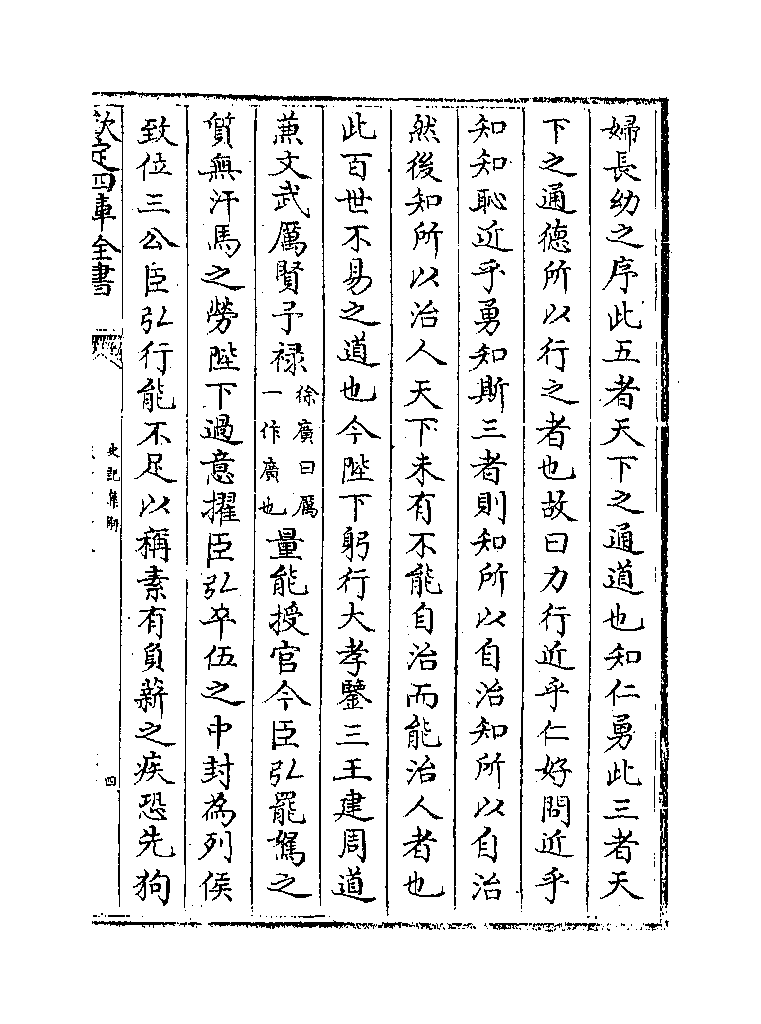 婦長幼之序此五者天下之通道也知仁勇此三者天
下之通德所以行之者也故曰力行近乎仁好問近乎
知知恥近乎勇知斯三者則知所以自治知所以自治
然後知所以治人天下未有不能自治而能治人者也
此百世不易之道也今陛下躬行大孝鑒三王建周道
兼文武厲賢予禄徐廣曰厲一作廣也量能授官今臣弘罷駑之
質無汗馬之勞陛下過意擢臣弘卒伍之中封為列侯
致位三公臣弘行能不足以稱素有負薪之疾恐先狗
欽定四庫全書
史記集解
四